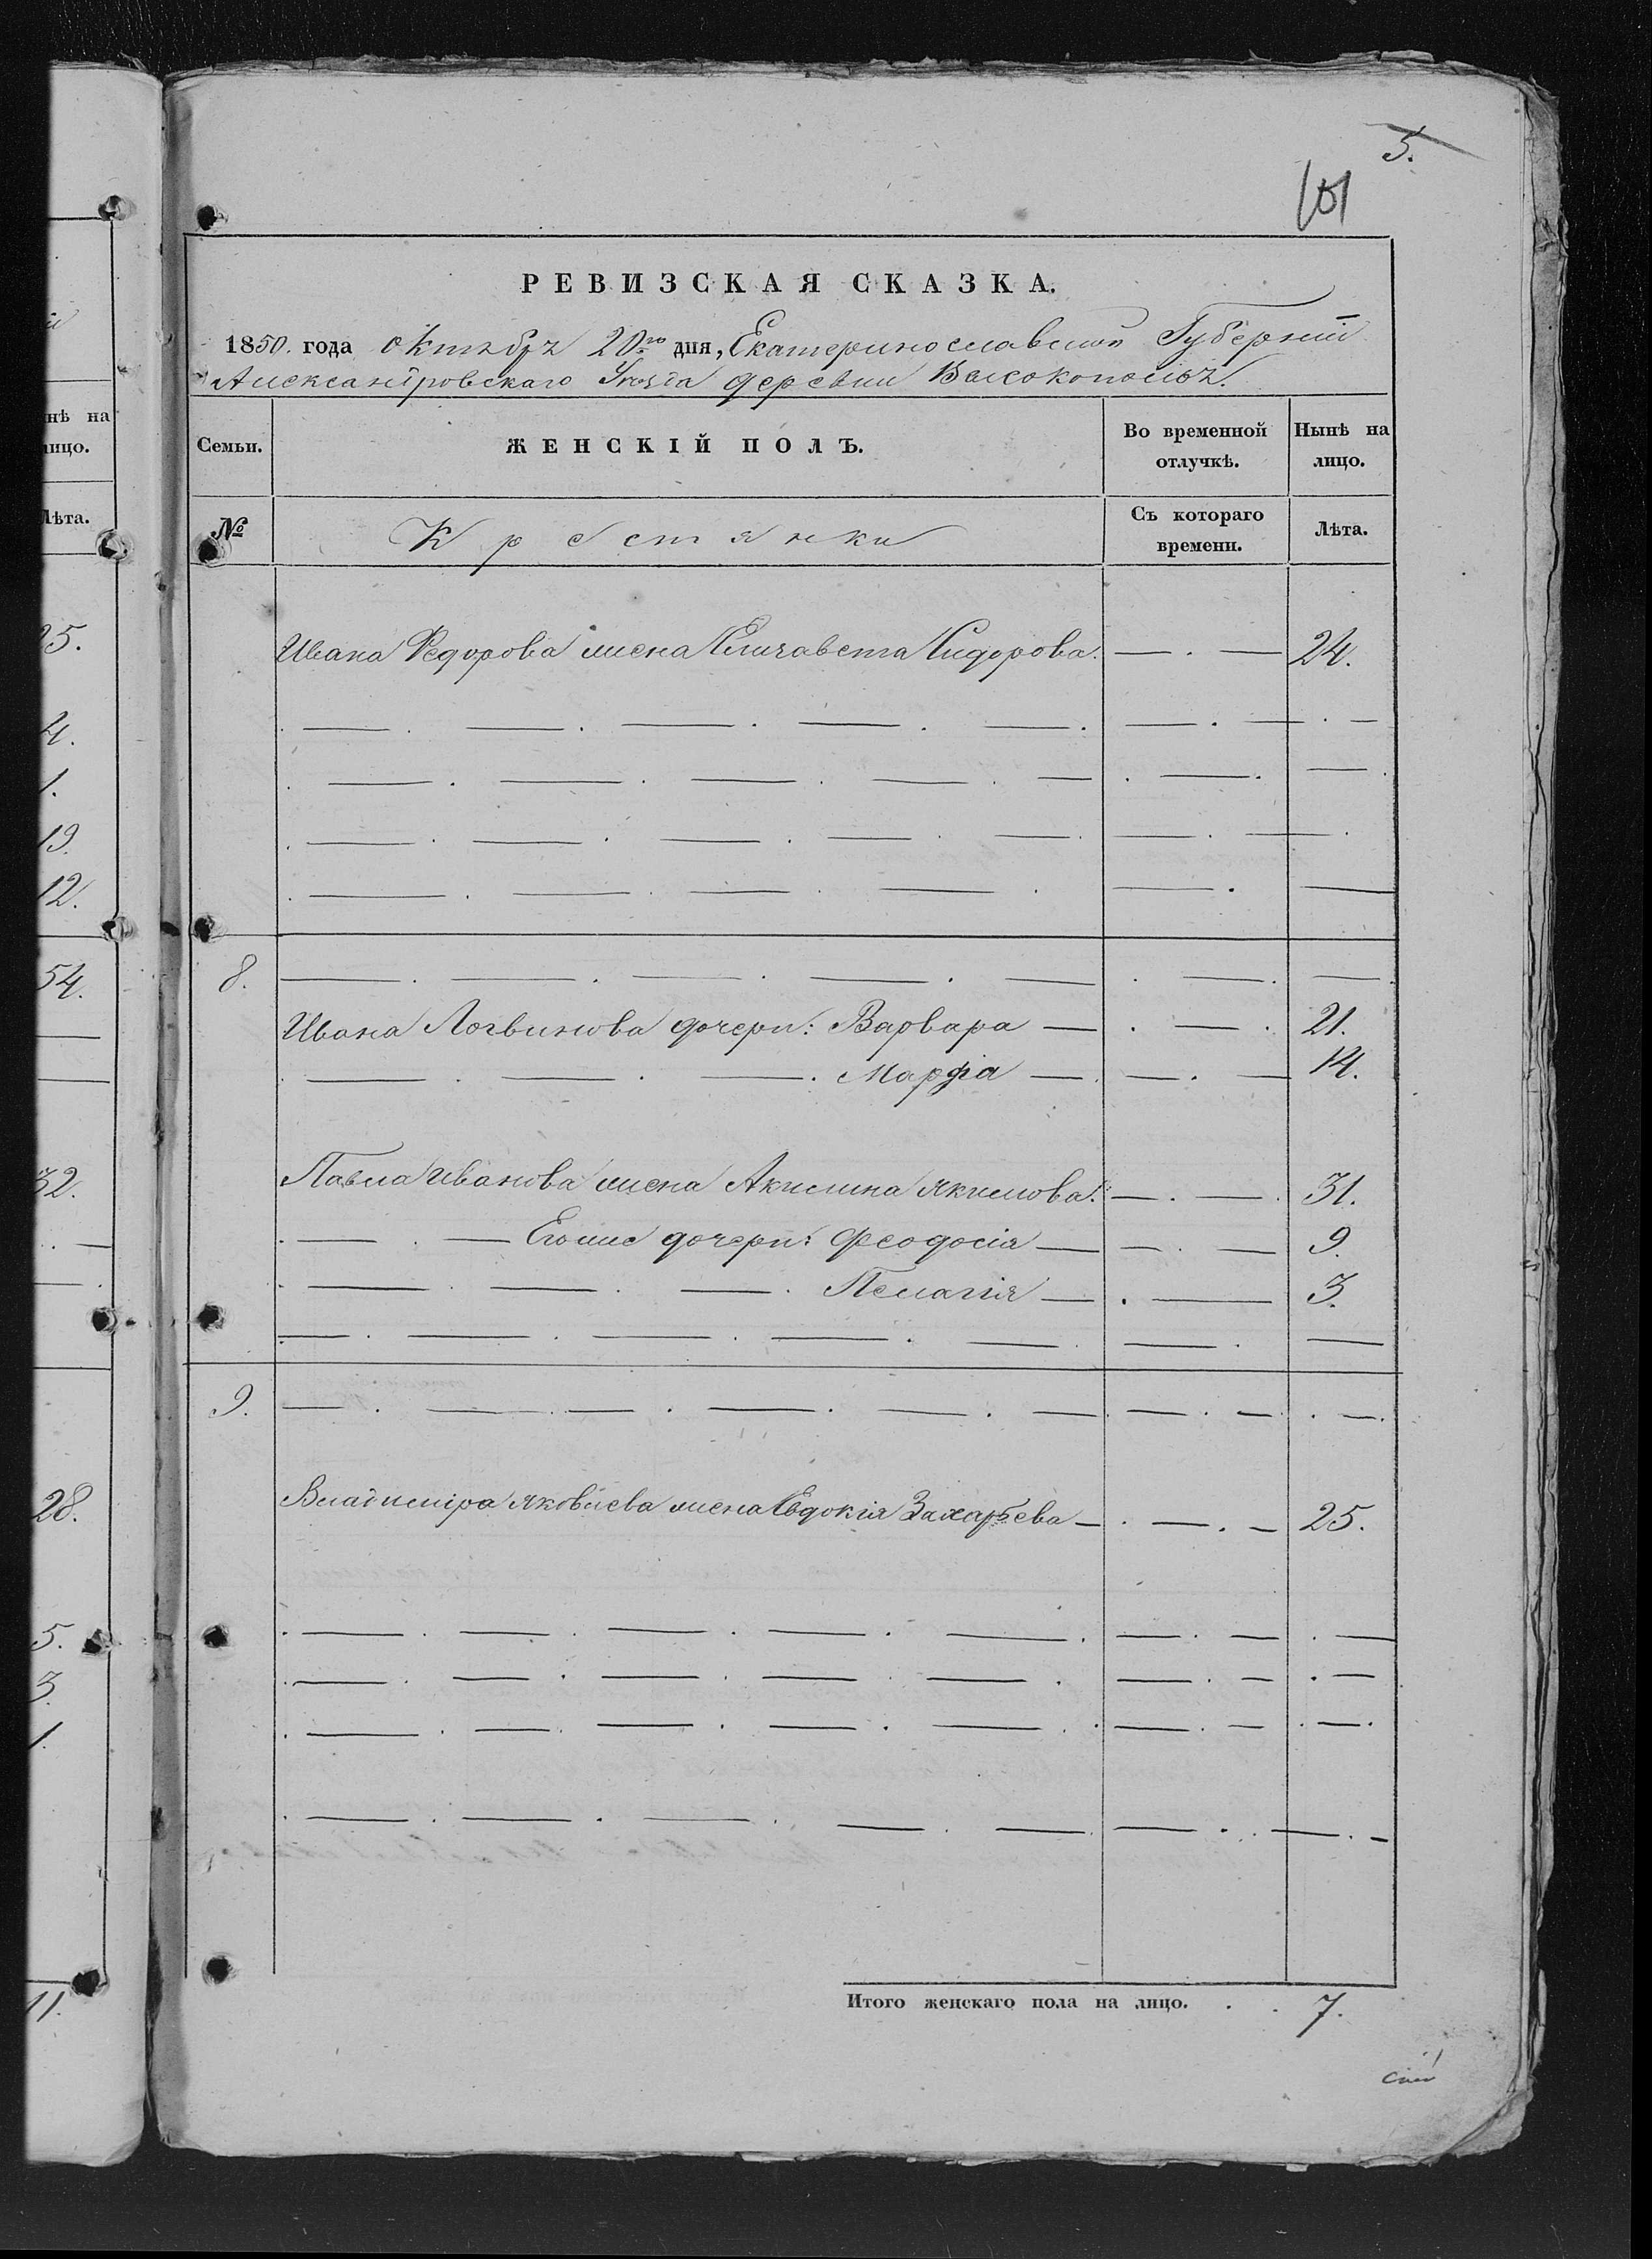 5.
101
РЕВИЗСКАЯ СКАЗКА.
1850. года октября 20го дня, Екатеринославской Губерніи
Александровскаго Уѣзда деревни Высокополья.
нѣ на
лицо.
Лѣта.
Семьи.
ЖЕНСКІЙ ПОЛЪ.
Во временной отлучкѣ.
Нынѣ на лицо.
№
Крестянки
Съ котораго времени.
Лѣта.
Ивана Федорова жена Елизавета Сидорова. — . — 24.
8.
Ивана Логвинова дочери: Варвара — . — . 21.
Марфіа — . — . — 14.
Павла Иванова жена Акилина Якимова. — . — . 31.
Егоже дочери: Феодосія — — . — 9.
Пелагія — . — 3.
9.
Владиміра Яковлева жена Евдокія Захарьева — . — . — 25.
Итого женскаго пола на лицо. . . 7.
4.
1.
19.
12.
54.
32.
28.
5.
3.
1.
11.